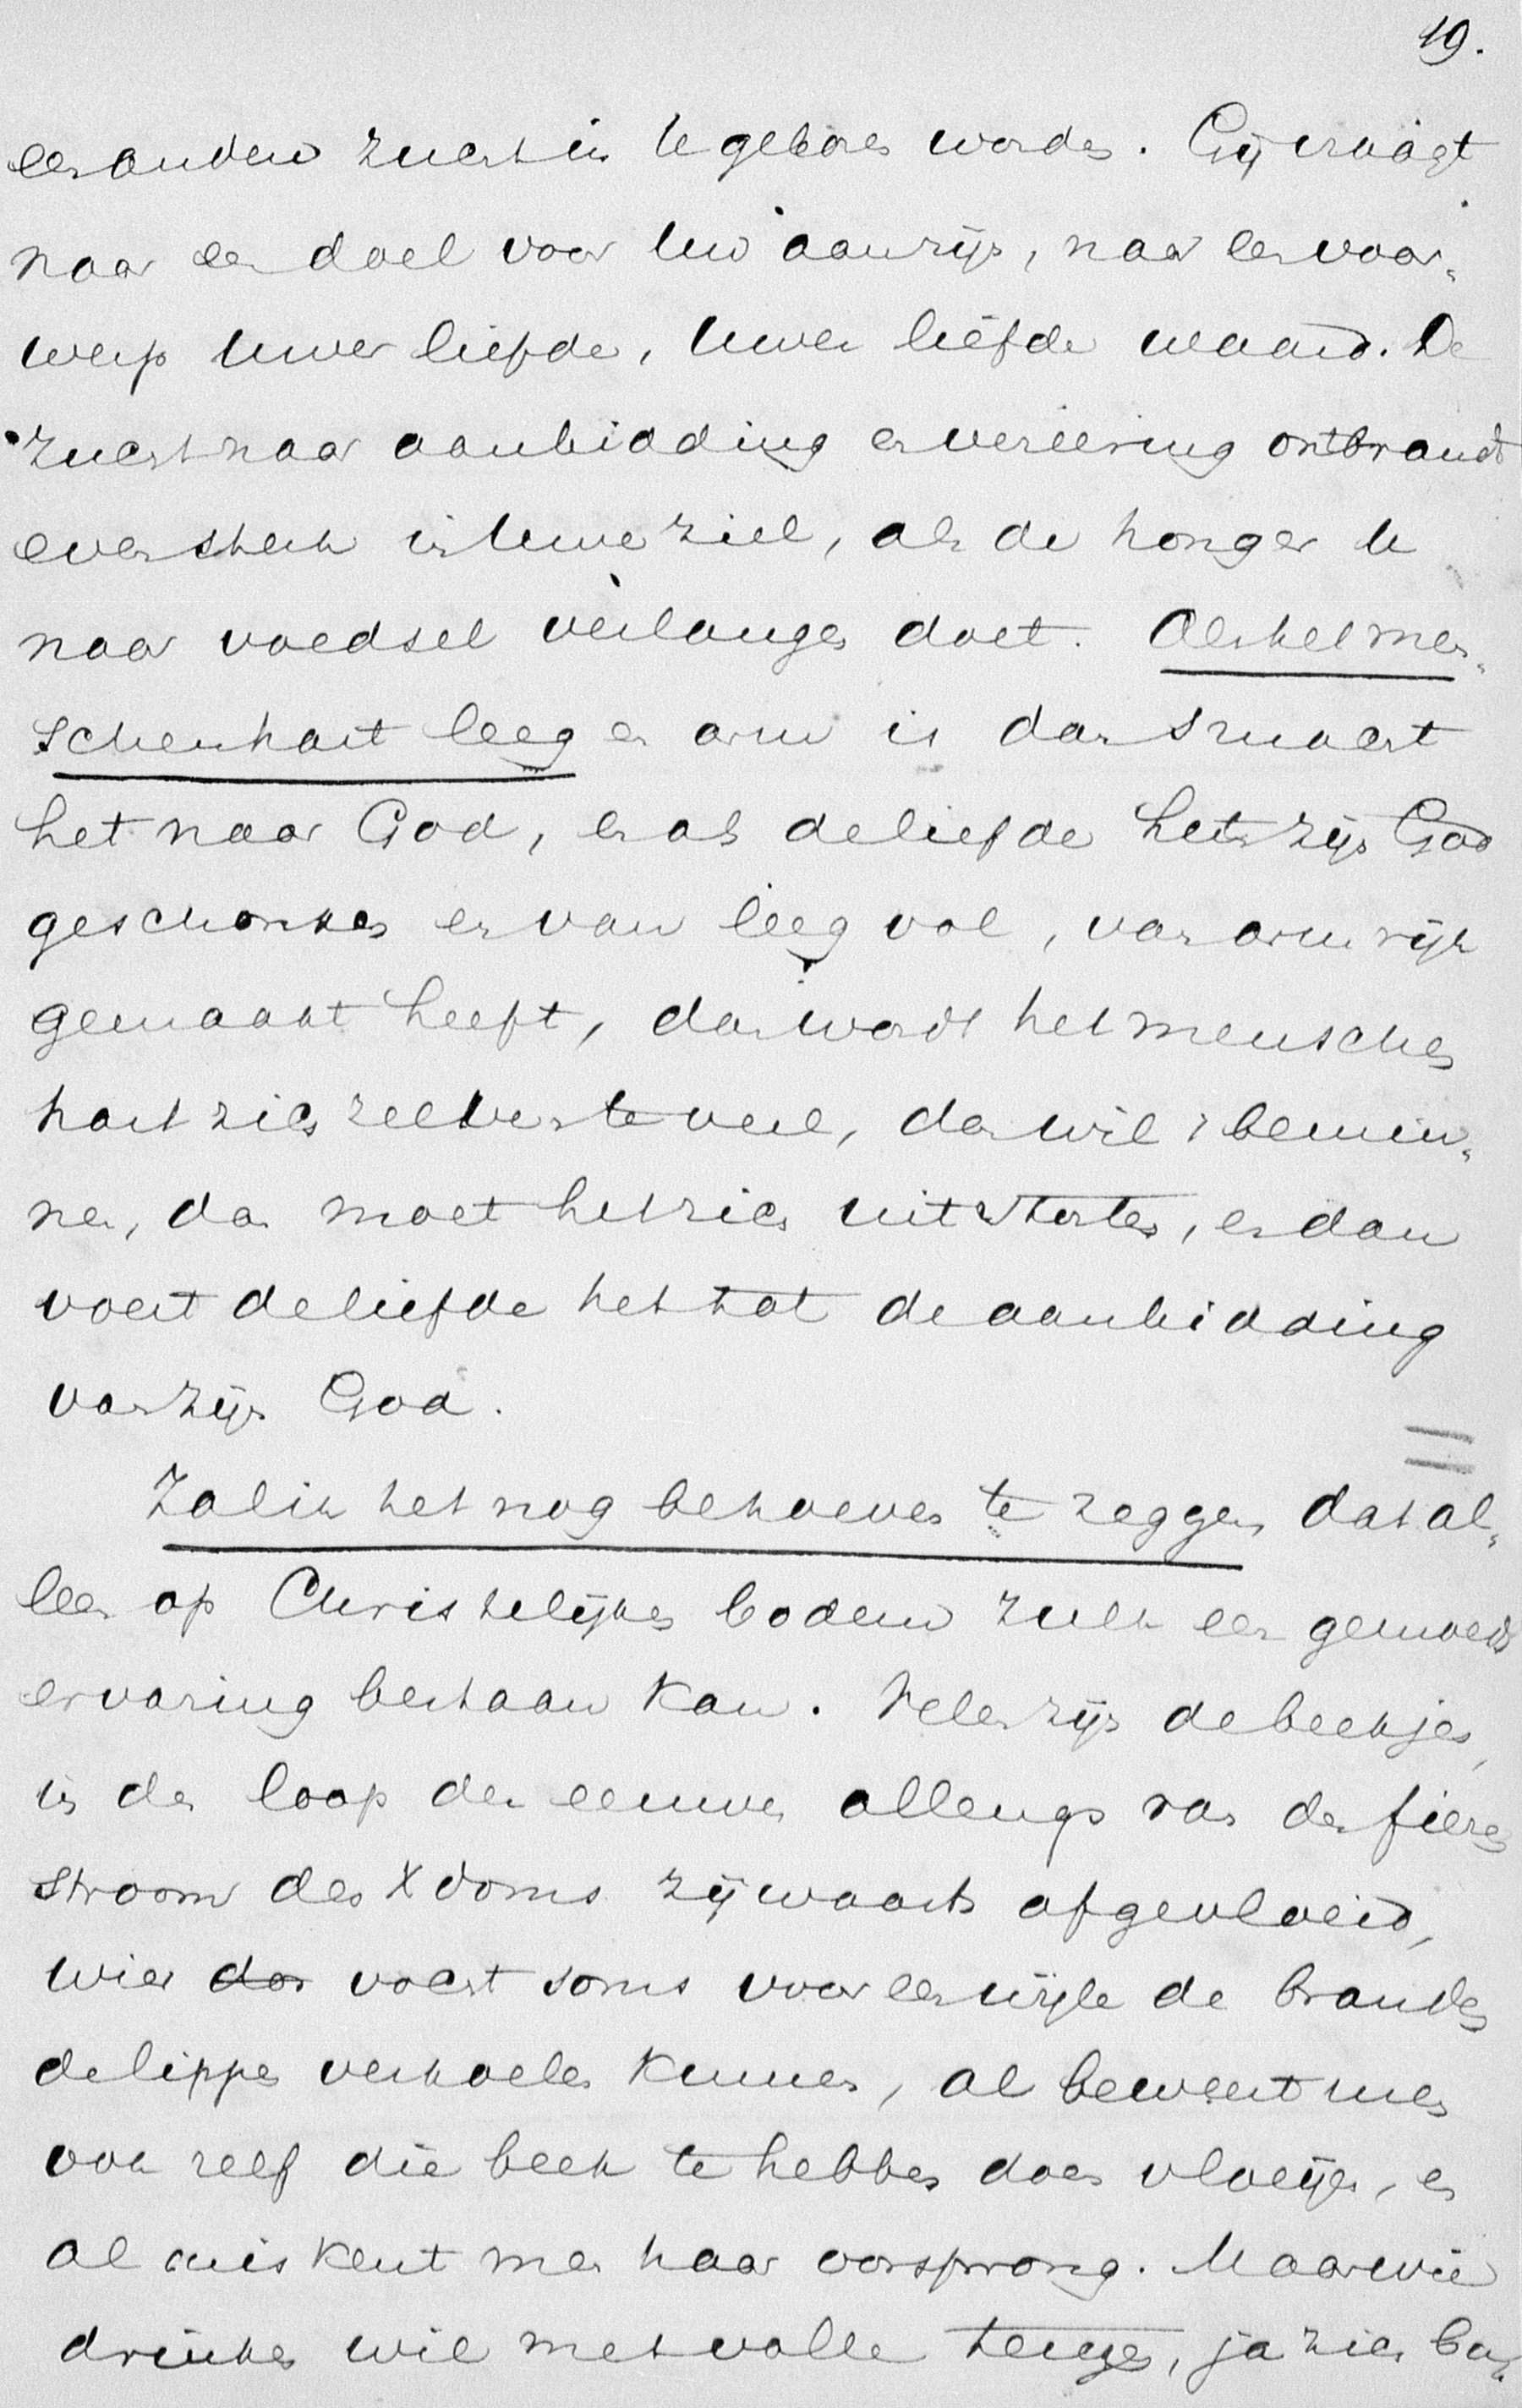 19.
een anderen zucht in U geboren worden. Gij vraagt
naar een doel voor Uw aanzijn, naar een voor„
werp Uwer liefde, Uwer liefde waard. De
zucht naar aanbidding en vereering ontbrandt
even sterk in Uwe ziel, als de honger U
naar voedsel verlangen doet. Als het men„
schenhart leeg en arm is dan smacht
het naar God, en als de liefde het zijn God
geschonken en van leeg vol, van arm rijk
gemaakt heeft, dan wordt het menschen
hart zich zelven te veel, dan wil 't bemin„
nen, dan moet het zich uitstorten, en dan
voert de liefde het tot de aanbidding
van zijn God.
Zal ik het nog behoeven te zeggen dat al„
leen op Christelijken bodem zulk een gemoeds
ervaring bestaan kan. Velen zijn de beekjes,
in den loop der eeuwen allengs van den fieren
stroom des Xdoms zijwaarts afgevloeid,
wier vocht soms voor een wijle de branden
de lippen verkoelen kunnen, al beweert men
ook zelf die beek te hebben doen vloeijen, en
al miskent men haar oorsprong. Maar wie
drinken wil met volle teugen, ja zich ba„